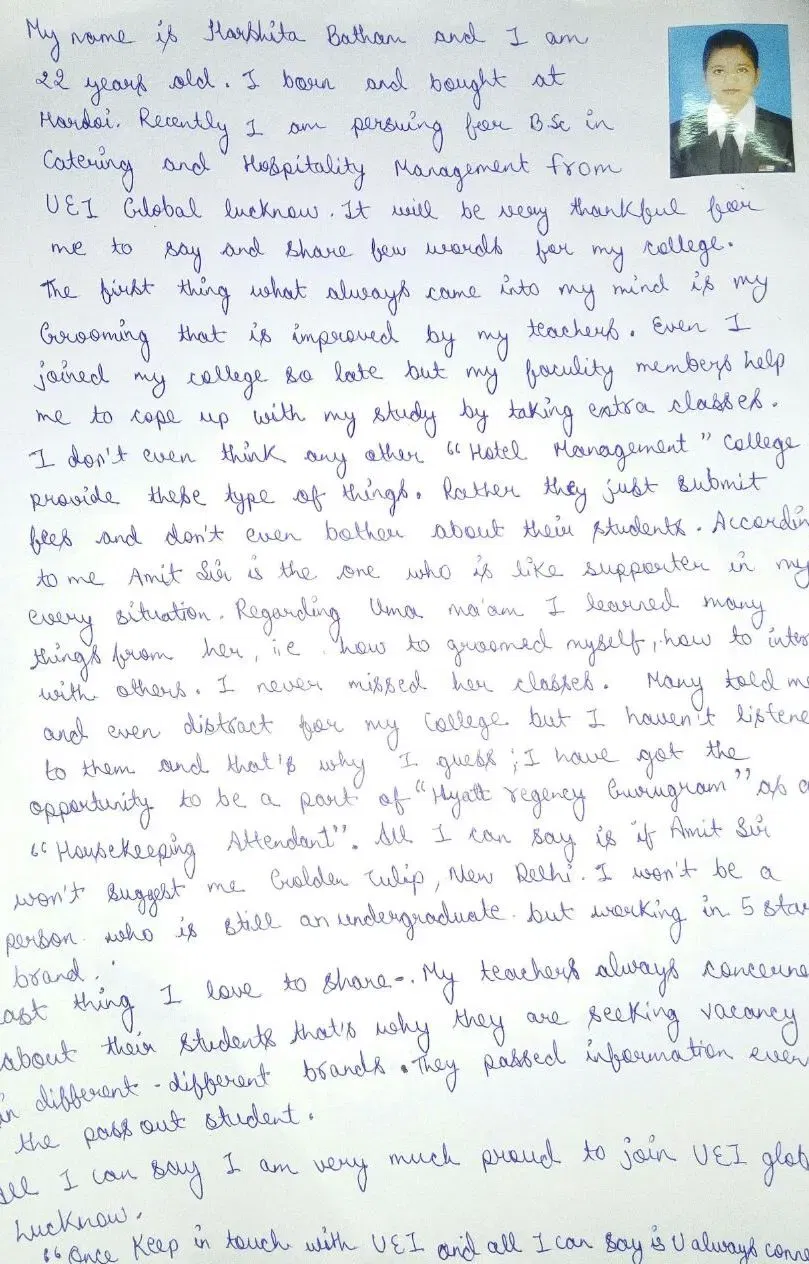 My name is Harshita Batham and I am
22 years old. I born and bought at
Hardoi. Recently I am persuing for B.Sc in
Catering and Hospitality Management from
UEI Global lucknow. It will be very thankful for
me to say and share few words for my college.
The first thing what always came into my mind is my
Grooming that is improved by my teachers. Even I
joined my college so late but my faculity members help
me to cope up with my study by taking extra classes.
I don't even think any other "Hotel Management" College
provide these type of things. Rather they just submit
fees and don't even bother about their students. Accordin
to me Amit Sir is the one who is like supporter in my
every situation. Regarding Uma ma'am I learned many
things from her, i.e how to groomed myself, how to inter
with others. I never missed her classes. Many told me
and even distract for my College but I haven't listene
to them and that's why I guess; I have got the
opportunity to be a part of "Hyatt regency Gurugram" as a
"Housekeeping Attendant". All I can say is if Amit Sir
won't suggest me Golden Tulip, New Delhi. I won't be a
person who is still an undergraduate but working in 5 star
brand.
ast thing I love to share-. My teachers always concerne
about their students that's why they are seeking vacancy
in different - different brands. They passed information even
the pass out student.
All I can say I am very much proud to join UEI glob
Lucknow.
"Once Keep in touch with UEI and all I can say is U always conne